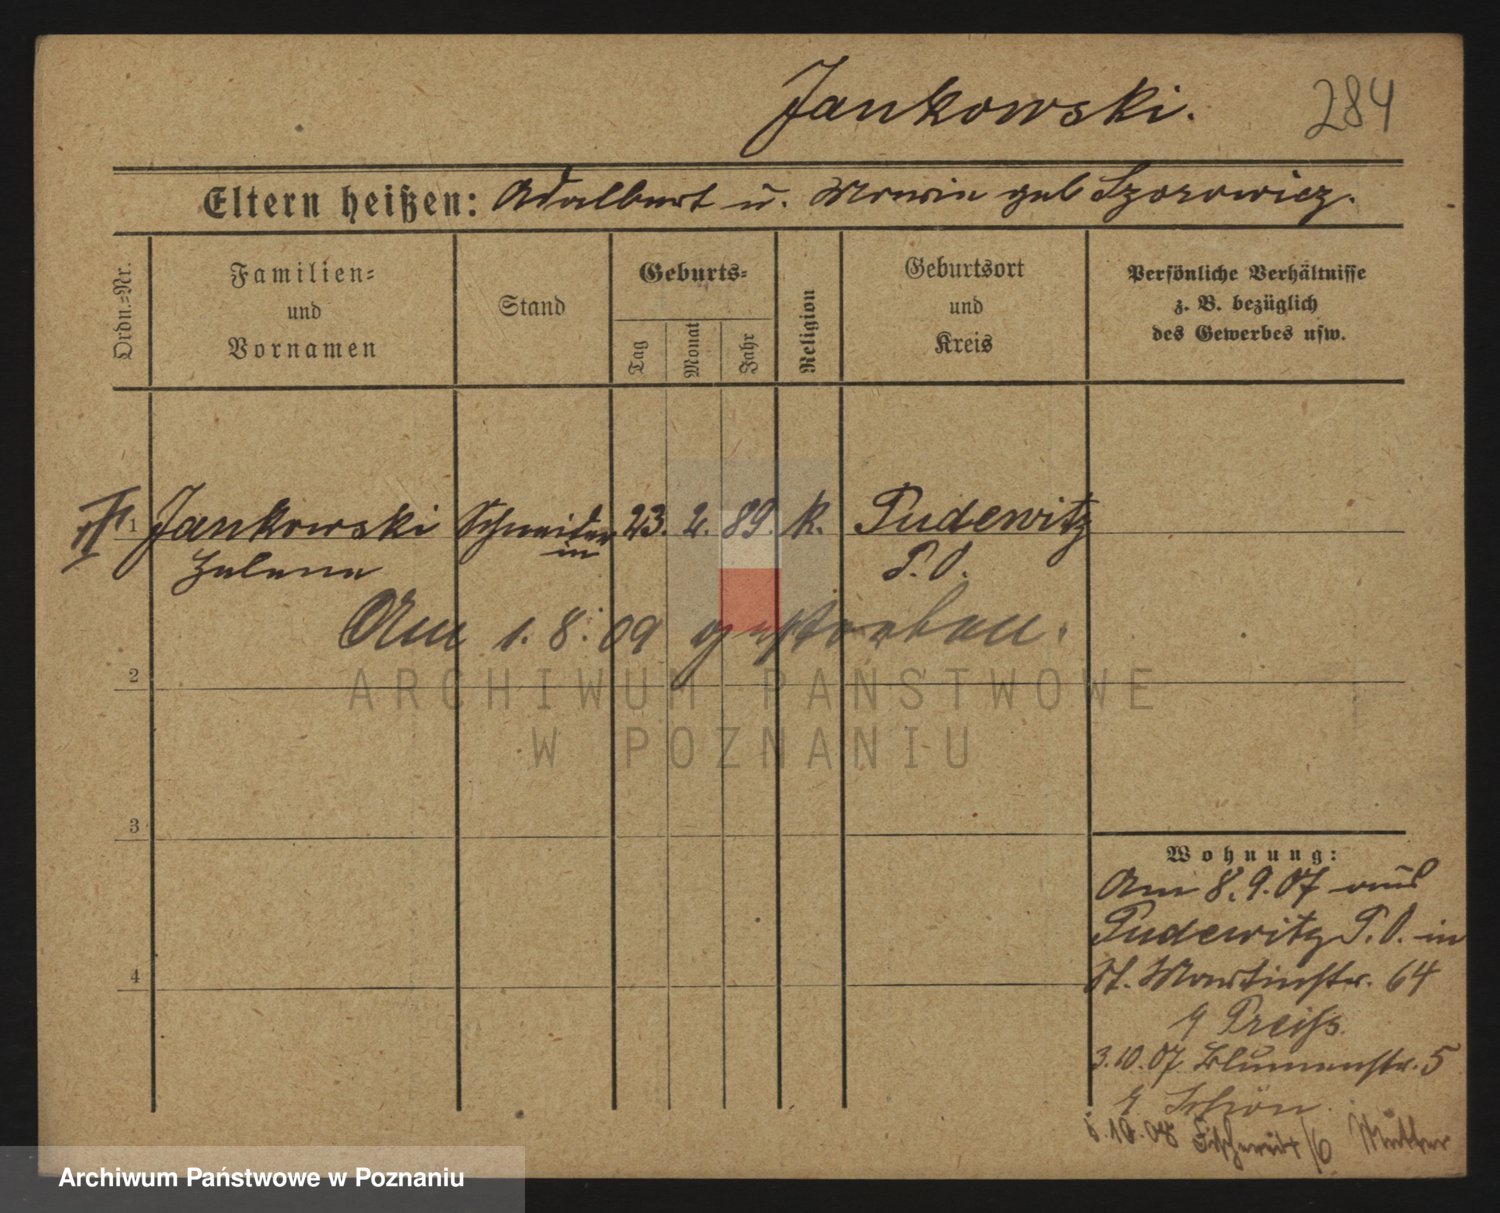 Jankowski.
284
Eltern heißen: Adalbert u. Marie geb Szorowicz.
Ordn.=Nr.
Familien=
und
Vornamen
Stand
Geburts=
Tag
Monat
Jahr
Religion
Geburtsort
und
Kreis
Persönliche Verhältnisse
z. B. bezüglich
des Gewerbes usw.
1 Jankowski Schneider 23. 2. 89. k. Pudewitz
in
Helene P. O.
Am 1. 8. 09 gestorben.
2
ARCHIWUM PAŃSTWOWE
W POZNANIU
3
Wohnung:
Am 8. 9. 07 aus
Pudewitz P. O. in
4
St. Martinstr. 64
Preiss.
3. 10. 07 Blumenstr. 5
Schön.
10. 08 /6 Mutter
Archiwum Państwowe w Poznaniu